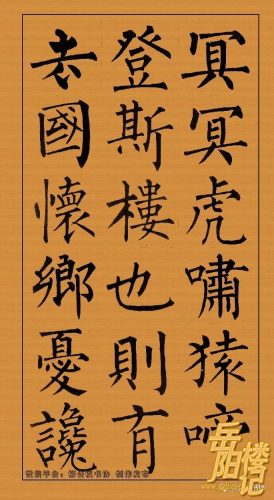 冥冥虎嘯猿啼
登斯樓也則有
去國懷鄉憂讒
岳陽楼记